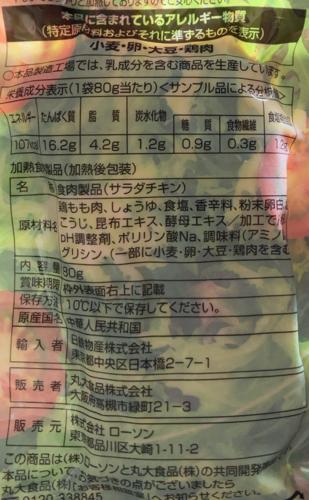 本品に含まれているアレルギー物質
(特定原材料およびそれに準ずるものを表示)
小麦・卵・大豆・鶏肉
○本品製造工場では、乳成分を含む商品を生産しています。
栄養成分表示(1袋80g当たり)<サンプル品による分析値>
エネルギー たんぱく質 脂質 炭水化物 糖質 食物繊維
107kcal 16.2g 4.2g 1.2g 0.9g 0.3g
加熱食肉製品(加熱後包装)
名称 食肉製品(サラダチキン)
原材料名 鶏もも肉、しょうゆ、食塩、香辛料、粉末卵白
こうじ、昆布エキス、酵母エキス/加工で
pH調整剤、ポリリン酸Na、調味料(アミノ
グリシン、(一部に小麦・卵・大豆・鶏肉を含む
内容量 80g
賞味期限 枠外表面右上に記載
保存方法 10℃以下で保存してください。
原産国名 中華人民共和国
輸入者 日鉄物産株式会社
東京都中央区日本橋2-7-1
販売者 丸大食品株式会社
大阪府高槻市緑町21-3
販売元 株式会社 ローソン
東京都品川区大崎1-11-2
この商品は(株)ローソンと丸大食品(株)の共同開発
本品について、お気づきの点がございましたら
丸大食品(株)
0120-338845 へお知らせください。